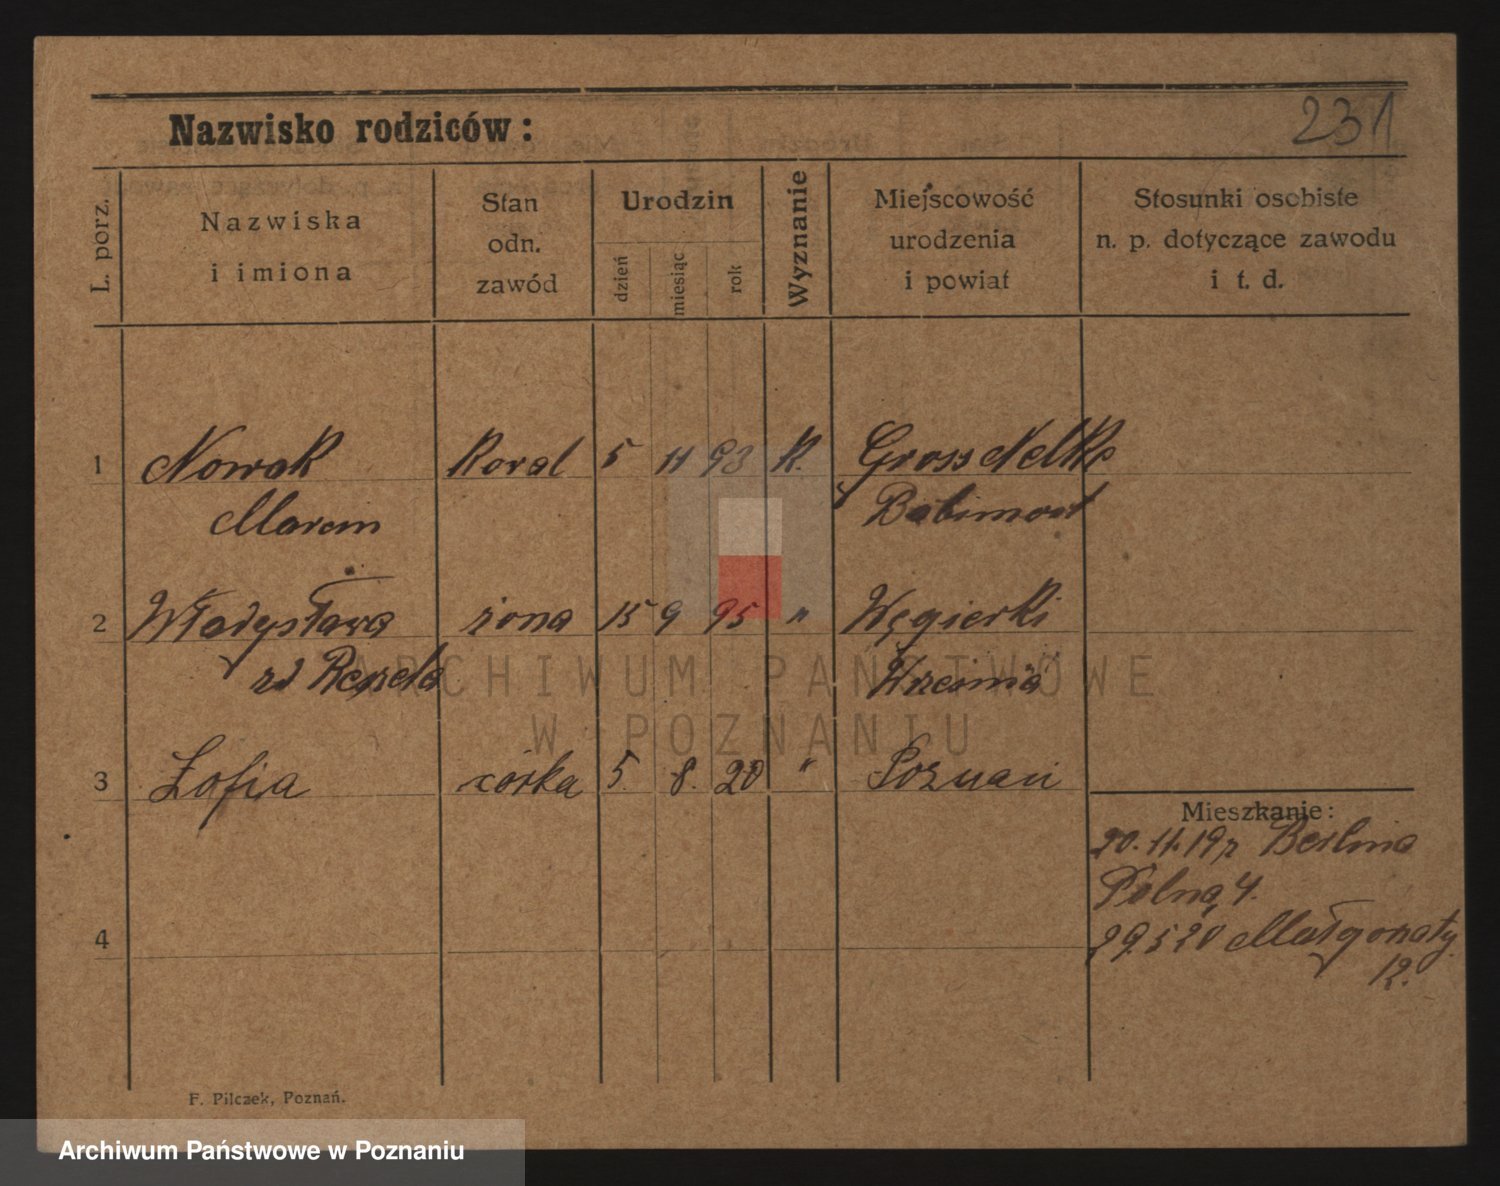 231
Nazwisko rodziców:
L. porz.
Nazwiska
i imiona
Stan
odn.
zawód
Urodzin
dzień
miesiąc
rok
Wyznanie
Miejscowość
urodzenia
i powiat
Stosunki osobiste
n. p. dotyczące zawodu
i t. d.
1 Nowak 5 11 93 K. Gross Nelke
Marcin Babimost
2 Władysława żona 15 9 95 " Węgierki
Września
ARCHIWUM PAŃSTWOWE
W POZNANIU
3 Zofia córka 5. 8. 20 " Poznań
Mieszkanie:
20.11.19 z Berlina
Polna 4.
4
29.5 20 Małgorzaty
12.
F. Pilczek, Poznań.
Archiwum Państwowe w Poznaniu